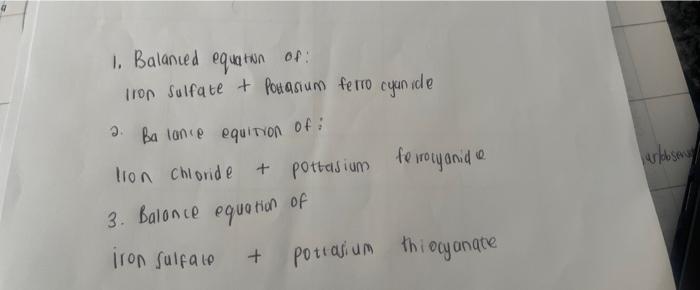 1. Balanced equation of:
iron sulfate + Pottasium ferro cyanide
2. Balance equition of:
Iron chloride + pottasium ferrocyanide
3. Balance equation of
iron sulfate + pottasium thiocyanate